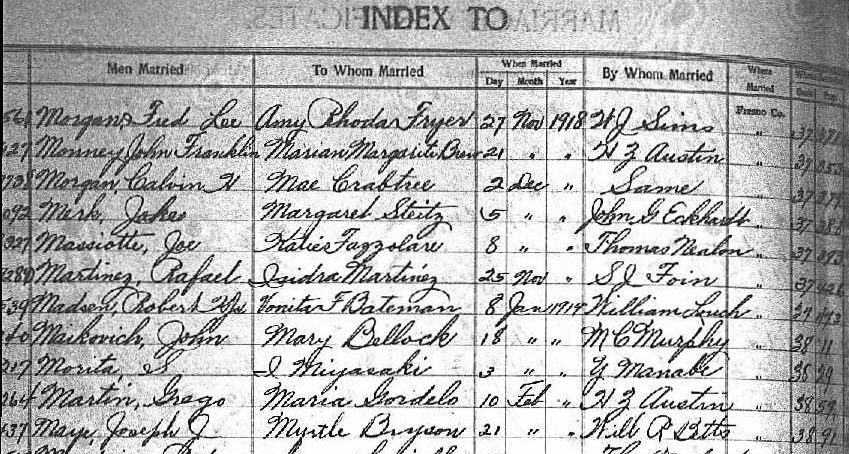 INDEX TO
Men Married To Whom Married When Married Day Month Year By Whom Married Where Married
Fresno Co.
Morgan, Fred Lee Amy Rhoda Fryer 27 Nov 1918 H J Sims "
Monney John Franklin Marian Margarite 21 " " H Z Austin "
Morgan, Calvin H Mae Crabtree 2 Dec " Same "
Merk, Jakes Margaret Steitz 5 " " John G Eckhardt "
Massiotte, Joe Katie Fazzolare 8 " " Thomas Nealon "
Martinez, Rafael Isidra Martinez 25 Nov " S J Foin "
Madsen, Robert Vonita F Bateman 8 Jan 1919 William "
Maikovich, John Mary Bellock 18 " " M C Murphy " 38 11
Morita, S. I Miyasaki 3 " " Y Manabe " 38 29
Martin, Grego Maria Gordelo 10 Feb " H Z Austin " 38 59
Maye, Joseph J Myrtle Bryson 21 " " Will R Betts " 38 91